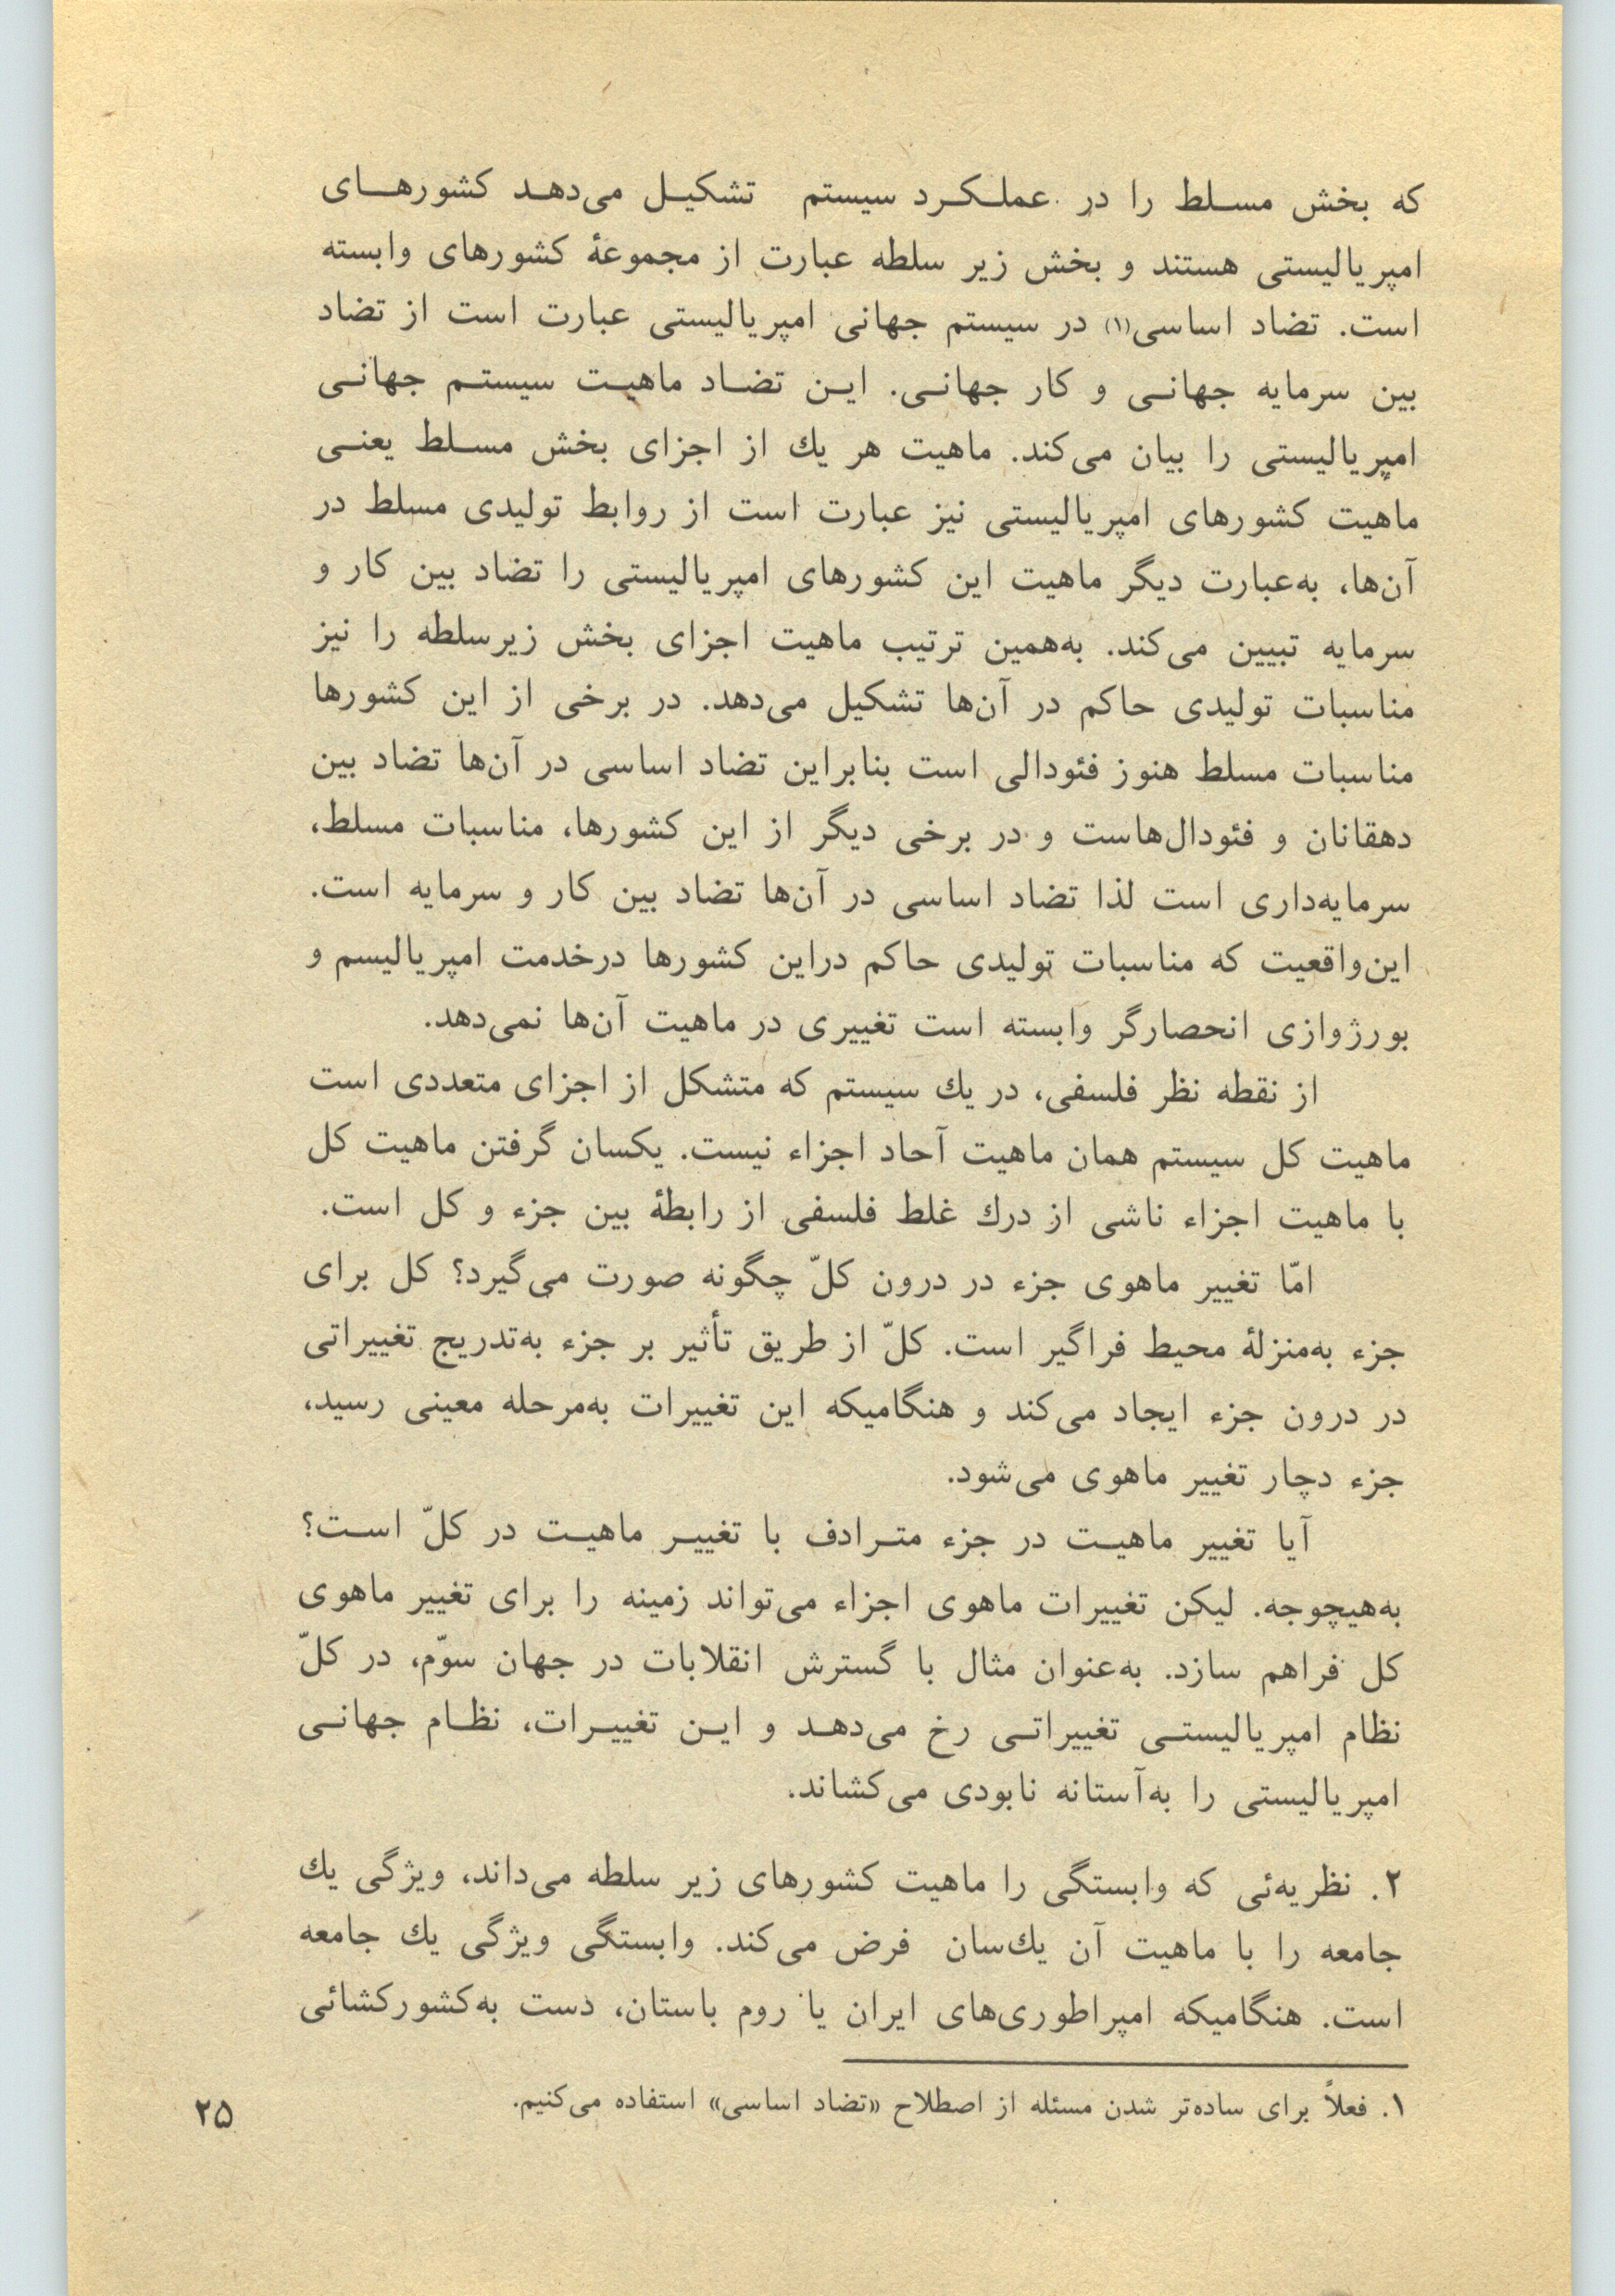 که بخش مسلط را در عملکرد سیستم تشکیل می‌دهد کشورهای
امپریالیستی هستند و بخش زیر سلطه عبارت از مجموعهٔ کشورهای وابسته
است. تضاد اساسی(۱) در سیستم جهانی امپریالیستی عبارت است از تضاد
بین سرمایه جهانی و کار جهانی. این تضاد ماهیت سیستم جهانی
امپریالیستی را بیان می‌کند. ماهیت هر یك از اجزای بخش مسلط یعنی
ماهیت کشورهای امپریالیستی نیز عبارت است از روابط تولیدی مسلط در
آن‌ها، به‌عبارت دیگر ماهیت این کشورهای امپریالیستی را تضاد بین کار و
سرمایه تبیین می‌کند. به‌همین ترتیب ماهیت اجزای بخش زیرسلطه را نیز
مناسبات تولیدی حاکم در آن‌ها تشکیل می‌دهد. در برخی از این کشورها
مناسبات مسلط هنوز فئودالی است بنابراین تضاد اساسی در آن‌ها تضاد بین
دهقانان و فئودال‌هاست و در برخی دیگر از این کشورها، مناسبات مسلط،
سرمایه‌داری است لذا تضاد اساسی در آن‌ها تضاد بین کار و سرمایه است.
این‌واقعیت که مناسبات تولیدی حاکم دراین کشورها درخدمت امپریالیسم و
بورژوازی انحصارگر وابسته است تغییری در ماهیت آن‌ها نمی‌دهد.
از نقطه نظر فلسفی، در یك سیستم که متشکل از اجزای متعددی است
ماهیت کل سیستم همان ماهیت آحاد اجزاء نیست. یکسان گرفتن ماهیت کل
با ماهیت اجزاء ناشی از درك غلط فلسفی از رابطهٔ بین جزء و کل است.
امّا تغییر ماهوی جزء در درون کلّ چگونه صورت می‌گیرد؟ کل برای
جزء به‌منزلهٔ محیط فراگیر است. کلّ از طریق تأثیر بر جزء به‌تدریج تغییراتی
در درون جزء ایجاد می‌کند و هنگامیکه این تغییرات به‌مرحله معینی رسید،
جزء دچار تغییر ماهوی می‌شود.
آیا تغییر ماهیت در جزء مترادف با تغییر ماهیت در کلّ است؟
به‌هیچوجه. لیکن تغییرات ماهوی اجزاء می‌تواند زمینه را برای تغییر ماهوی
کل فراهم سازد. به‌عنوان مثال با گسترش انقلابات در جهان سوّم، در کلّ
نظام امپریالیستی تغییراتی رخ می‌دهد و این تغییرات، نظام جهانی
امپریالیستی را به‌آستانه نابودی می‌کشاند.
۲. نظریه‌ئی که وابستگی را ماهیت کشورهای زیر سلطه می‌داند، ویژگی یك
جامعه را با ماهیت آن یك‌سان فرض می‌کند. وابستگی ویژگی یك جامعه
است. هنگامیکه امپراطوری‌های ایران یا روم باستان، دست به‌کشورکشائی
۱. فعلاً برای ساده‌تر شدن مسئله از اصطلاح «تضاد اساسی» استفاده می‌کنیم.
۲۵